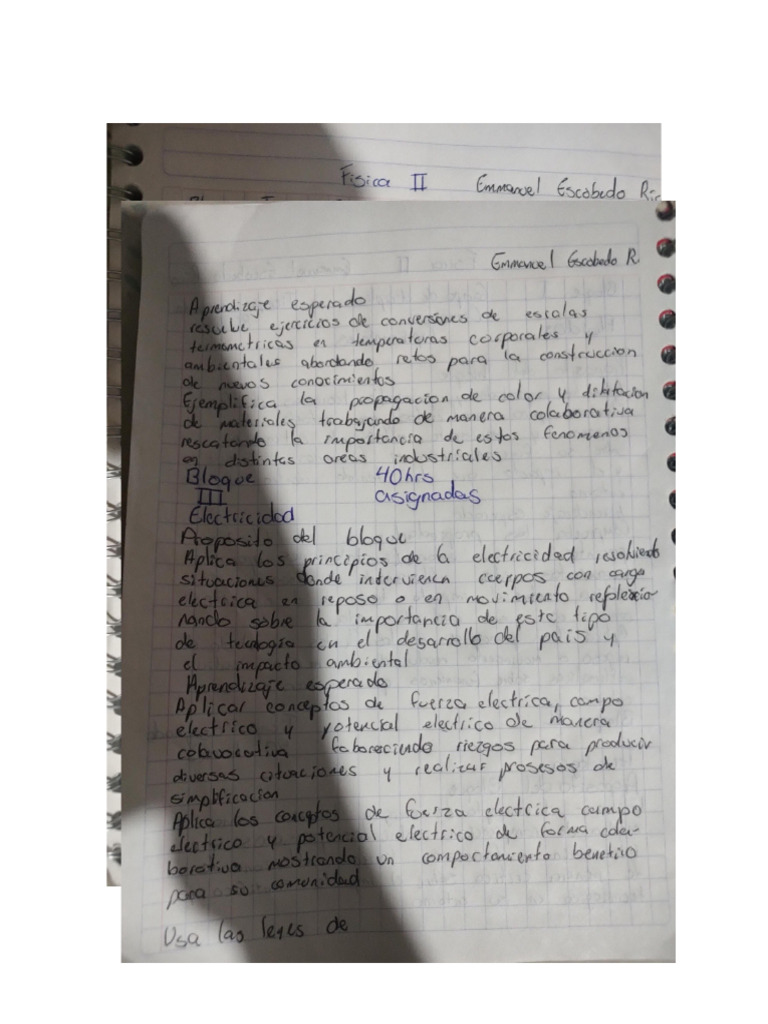 Fisica II Emmanuel Escobedo
Emmanuel Escobedo R.
Aprendizaje esperado
resuelbe ejercicios de conversiones de escalas
termometricas en temperaturas corporales y
ambientales abordando retos para la construccion
de nuevos conocimientos
Ejemplifica la propagacion de calor y dilatacion
de materiales trabajando de manera colaborativa
rescatando la importancia de estos fenomenos
en distintas areas industriales
Bloque 40hrs
III asignadas
Electricidad
Proposito del bloque
Aplica los principios de la electricidad resolviendo
situaciones donde intervienen cuerpos con carga
electrica en reposo o en movimiento reflexio-
nando sobre la importancia de este tipo
de tecnologia en el desarrollo del pais y
el impacto ambiental
Aprendizaje esperado
Aplicar conceptos de fuerza electrica, campo
electrico y potencial electrico de manera
colavorativa faboreciendo riezgos para producir
diversas cituaciones y realizar prosesos de
simplificacion
Aplica los conceptos de fuerza electrica campo
electrico y potencial electrico de forma cola-
borativa mostrando un comportamiento benefico
para su comunidad
Usa las leyes de